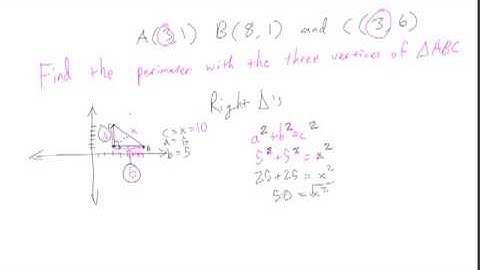 A(3,1) B(8,1) and C(3,6)
Find the perimeter with the three vertices of ΔABC
Right Δ's
c = x = 10
b = 5
a² + b² = c²
5² + 5² = x²
25 + 25 = x²
50 = √x²